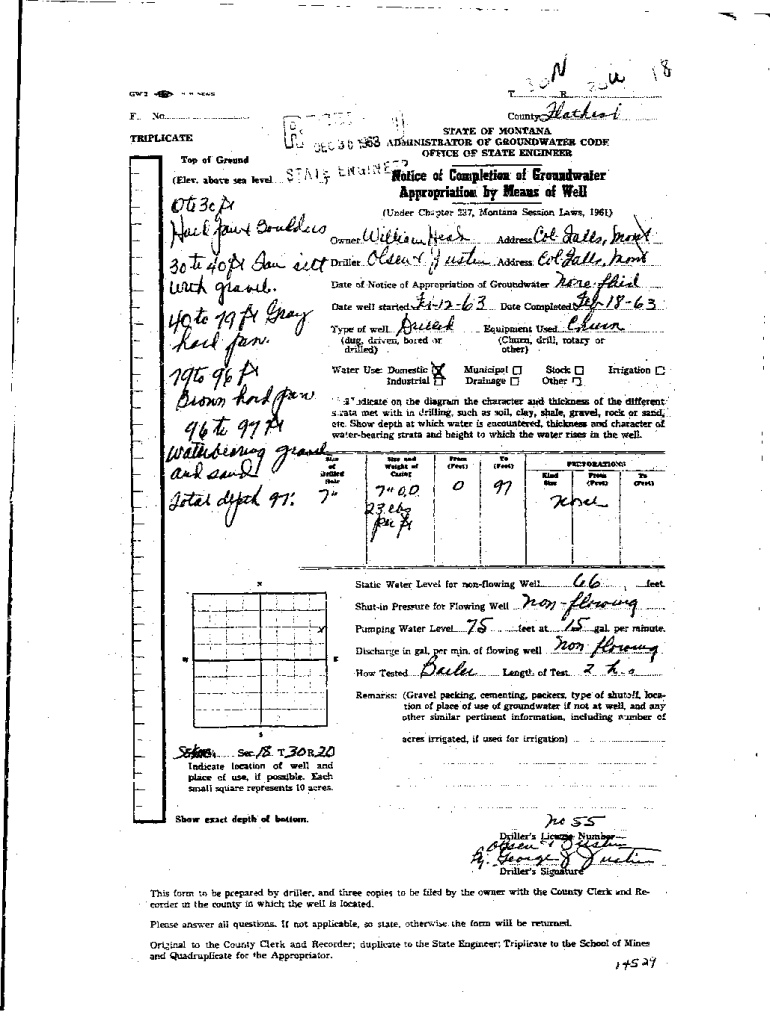 30N 20W 18
GW 2
T. R.
F. No.
County Flathead
TRIPLICATE
DEC 30 1963
STATE ENGINEER
STATE OF MONTANA
ADMINISTRATOR OF GROUNDWATER CODE
OFFICE OF STATE ENGINEER
Top of Ground
(Elev. above sea level
Notice of Completion of Groundwater
Appropriation by Means of Well
(Under Chapter 237, Montana Session Laws, 1961)
0 to 30 ft
Hard pan & Boulders
Owner William Address Col Falls, Mont
30 to 40 ft San silt
Driller Olsen & Justin Address Col Falls, Mont
with gravel.
Date of Notice of Appropriation of Groundwater None filed
Date well started 12-63 Date Completed Feb-18-63
40 to 79 ft Gray
hard pan.
Type of well Drilled Equipment Used Churn
(dug, driven, bored or drilled) (Churn, drill, rotary or other)
79 to 96 ft
Brown hard pan
96 to 97 ft
Waterbearing gravel
and sand
Total depth 97'.
Water Use: Domestic X Municipal Stock Irrigation
Industrial Drainage Other
Indicate on the diagram the character and thickness of the different
strata met with in drilling, such as soil, clay, shale, gravel, rock or sand,
etc. Show depth at which water is encountered, thickness and character of
water-bearing strata and height to which the water rises in the well.
Size of Drilled Hole
Size and Weight of Casing
From (Feet)
To (Feet)
PERFORATIONS
Kind Size
From (Feet)
To (Feet)
7" 7" O.D. 0 97 None
23 lbs
per ft
Static Water Level for non-flowing Well 66 feet.
Shut-in Pressure for Flowing Well Non-flowing
Pumping Water Level 75 feet at 15 gal. per minute.
Discharge in gal. per min. of flowing well non flowing
How Tested Bailer Length of Test 2 hrs
Remarks: (Gravel packing, cementing, packers, type of shutoff, loca-
tion of place of use of groundwater if not at well, and any
other similar pertinent information, including number of
acres irrigated, if used for irrigation)
N
W
E
S
X
Sec. 18 T. 30 R. 20
Indicate location of well and
place of use, if possible. Each
small square represents 10 acres.
Show exact depth of bottom.
no 55
Driller's License Number
Olsen & Justin
By. George J Justin
Driller's Signature
This form to be prepared by driller, and three copies to be filed by the owner with the County Clerk and Re-
corder in the county in which the well is located.
Please answer all questions. If not applicable, so state, otherwise the form will be returned.
Original to the County Clerk and Recorder; duplicate to the State Engineer; Triplicate to the School of Mines
and Quadruplicate for the Appropriator.
14529